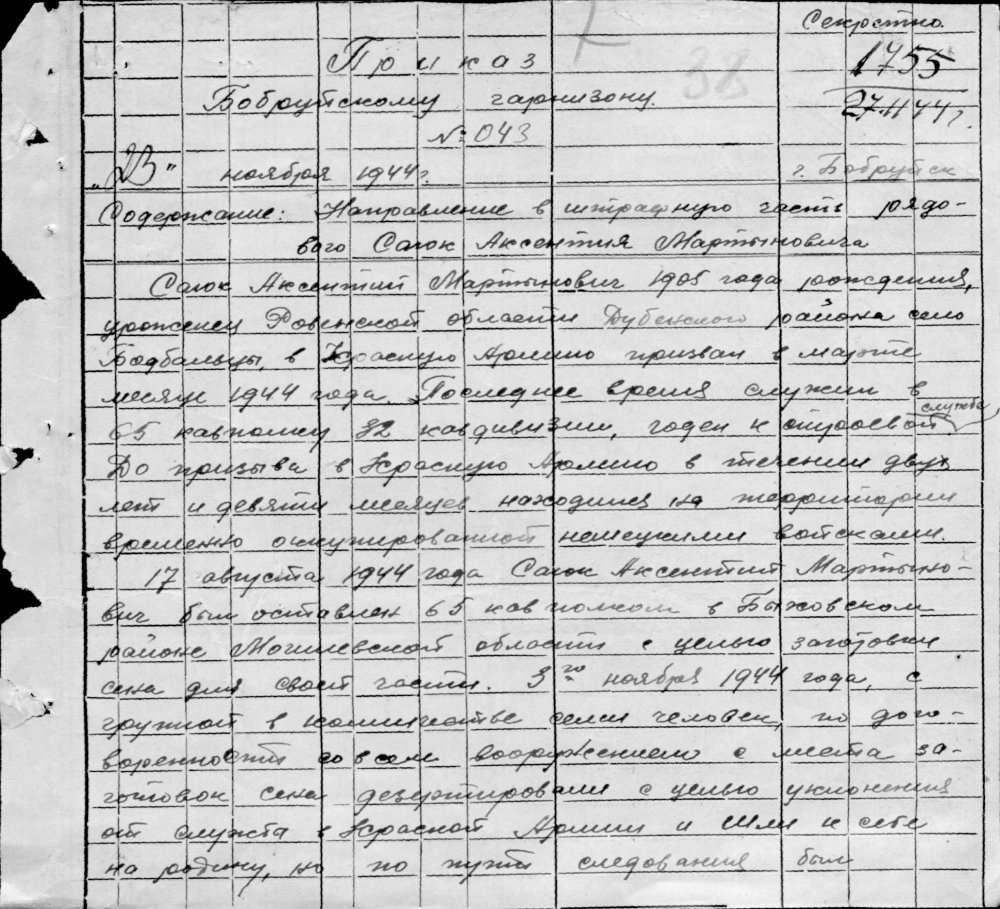 Секретно.
Приказ
1755
38
Бобруйскому гарнизону.
27.11.44 г.
№ 043
"23" ноября 1944 г.
г. Бобруйск
Содержание: Направление в штрафную часть рядо-
вого Сагок Аксентия Мартыновича
Сагок Аксентий Мартынович 1905 года рождения,
уроженец Ровенской области Дубенского района село
Бодбальцы, в Красную Армию призван в марте
месяце 1944 года. Последнее время служил в
65 кавполку 32 кавдивизии, годен к строевой службе,
До призыва в Красную Армию в течении двух
лет и девяти месяцев находился на территории
временно оккупированной немецкими войсками.
17 августа 1944 года Сагок Аксентий Мартыно-
вич был оставлен 65 кав полком в Быховском
районе Могилевской области с целью заготовки
сена для своей части. 3го ноября 1944 года, с
группой в количестве семи человек, по дого-
воренности со всем вооружением с места за-
готовок сена дезертировали с целью уклонения
от службы в Красной Армии и шли к себе
на родину, но по пути следования был